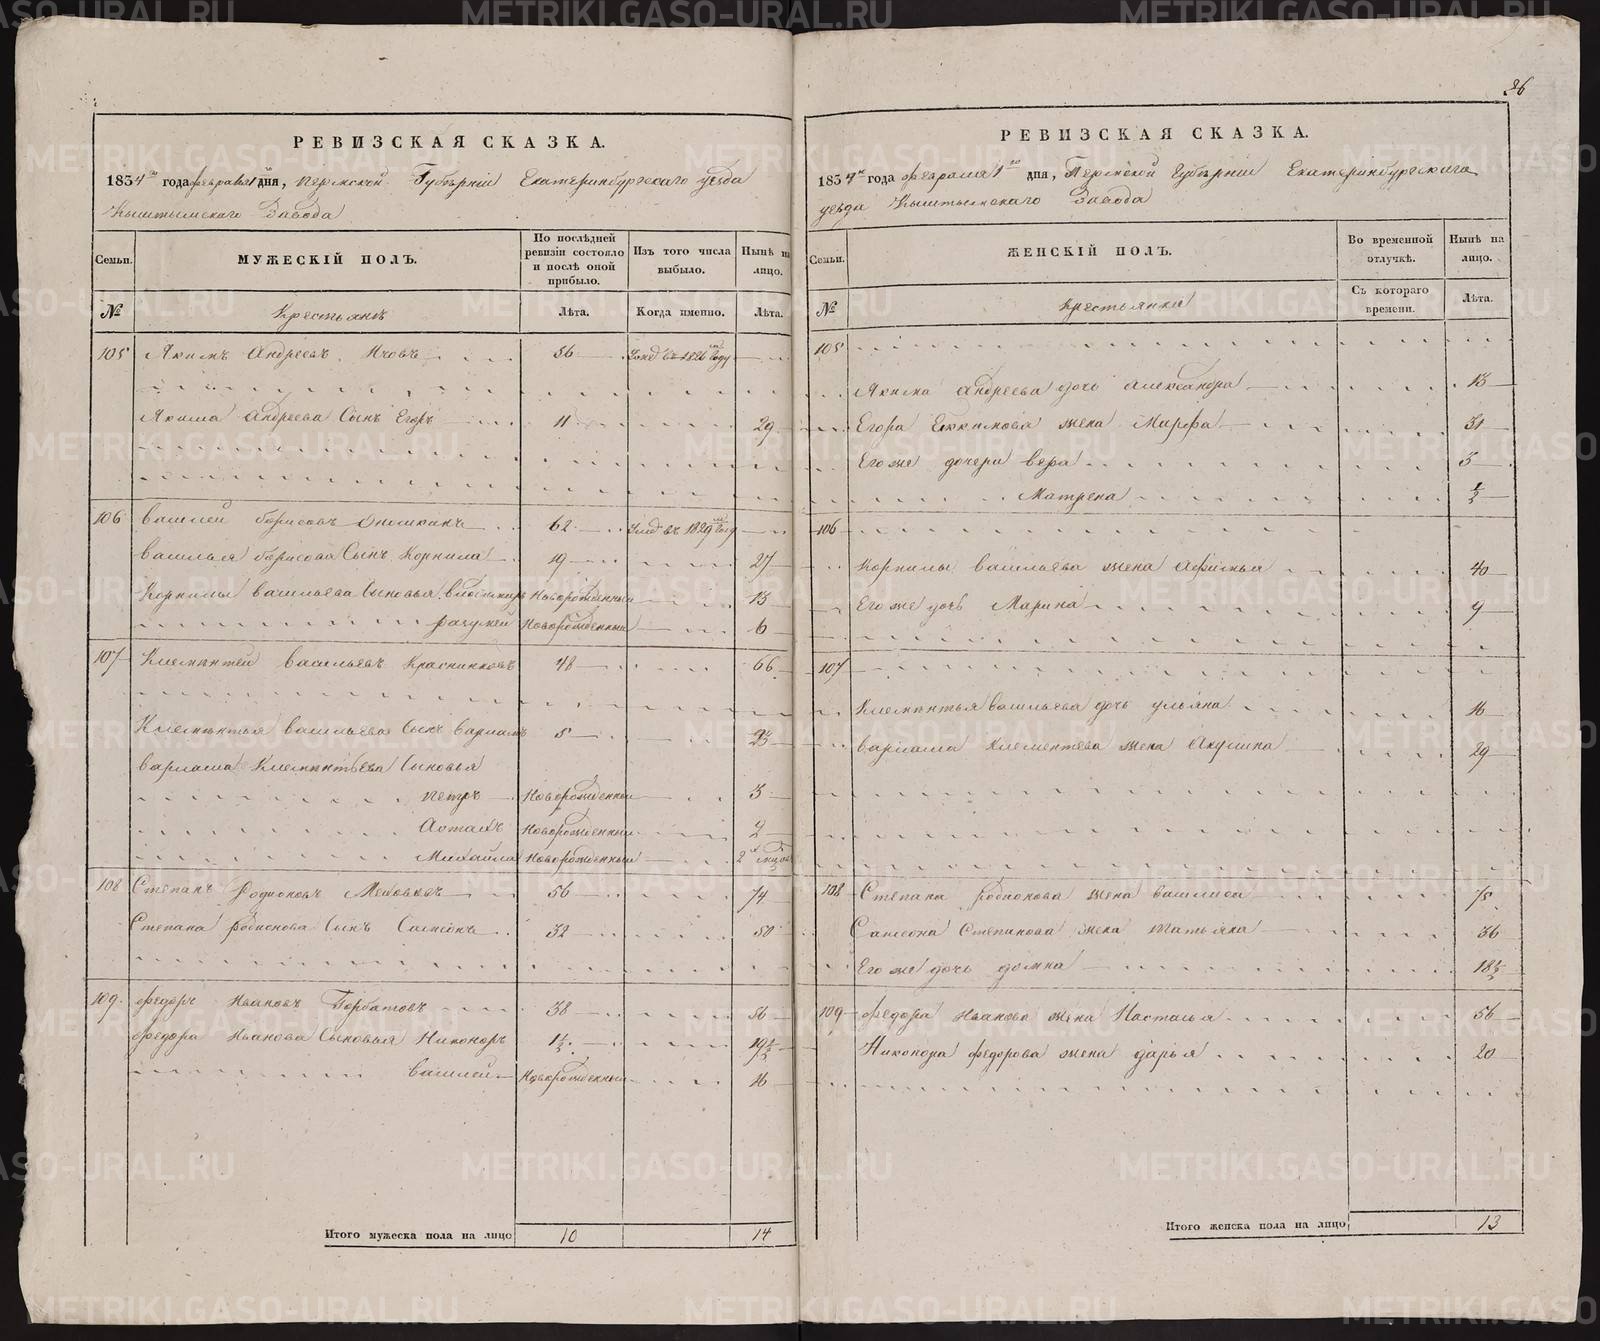 26
РЕВИЗСКАЯ СКАЗКА.
1834го года февраля 1 дня, Пермской Губернiи Екатеринбургскаго уезда
Кыштымскаго Завода
Семьи.
МУЖЕСКІЙ ПОЛЪ.
По послѣдней ревизіи состояло и послѣ оной прибыло.
Изъ того числа выбыло.
Нынѣ на лицо.
№
Крестьянъ
Лѣта.
Когда именно.
Лѣта.
105 Якимъ Андреевъ 56 1826 году
Якима Андреева Сынъ Егоръ 11 29
106 Василей Борисовъ 62 въ 1829 году
Василья Борисова Сынъ Корнила 19 27
Корнилы Васильева Сыновья Новорожденный 13
Новорожденный 6
107 Клементей Васильевъ 48 66
Клементья Васильева Сынъ Варламъ 5 23
Варлама Клементьева Сыновья
Петръ Новорожденный 3
Новорожденный 2
Михайла Новорожденный 2
108 Степанъ Родионовъ 56 74
Степана Родионова Сынъ Самсонъ 32 50
109 Федоръ Ивановъ Горбатовъ 38 56
Федора Иванова Сыновья Никоноръ 1½ 19½
Василей Новорожденный 16
Итого мужеска пола на лицо 10 14
РЕВИЗСКАЯ СКАЗКА.
1834го года февраля 1го дня, Пермской Губернiи Екатеринбургскаго
уезда Кыштымскаго Завода
Семьи.
ЖЕНСКІЙ ПОЛЪ.
Во временной отлучкѣ.
Нынѣ на лицо.
№
Крестьянки
Съ котораго времени.
Лѣта.
105
Якима Андреева дочь Александра 13
Егора Екимова жена Марфа 31
Его же дочери Вера 3
Матрена ½
106
Корнилы Васильева жена Афимья 40
Его же дочь Марина 9
107
Клементья Васильева дочь Ульяна 16
Варлама Клементева жена Акулина 29
108 Степана Родионова жена Василиса 75
Самсона Степанова жена Татьяна 36
Его же дочь Домна 18½
109 Федора Иванова жена Насталья 56
Никонора Федорова жена Дарья 20
Итого женска пола на лицо 13
METRIKI.GASO-URAL.RU